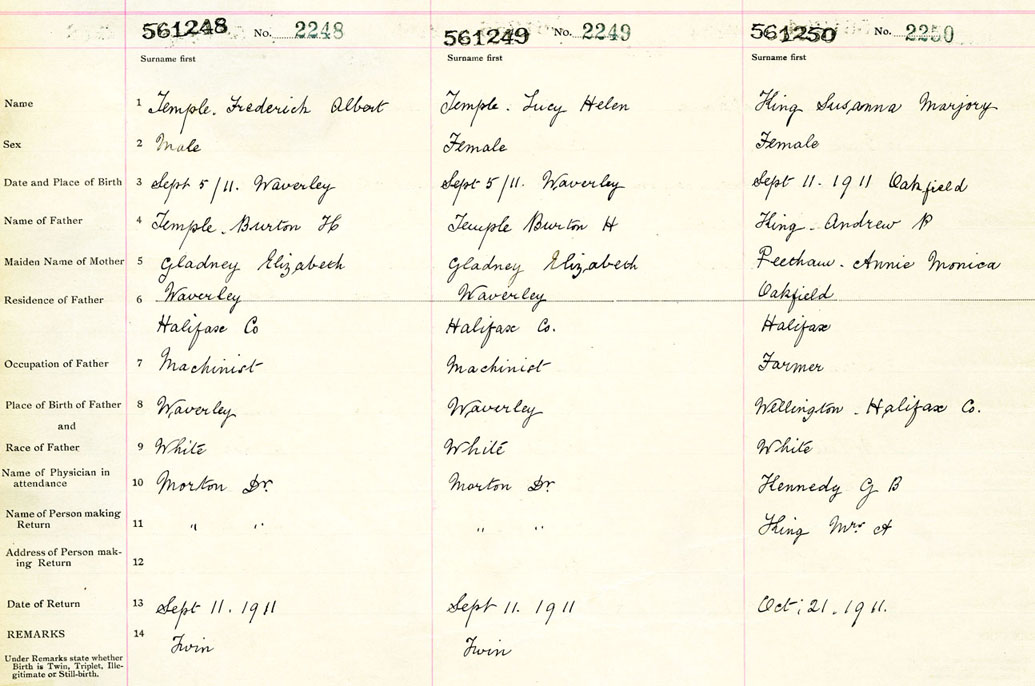 561248 No. 2248 561249 No. 2249 561250 No. 2250
Surname first Surname first Surname first
Name 1 Temple. Frederick Albert Temple. Lucy Helen King Susanna Marjory
Sex 2 Male Female Female
Date and Place of Birth 3 Sept 5/11. Waverley Sept 5/11. Waverley Sept 11. 1911 Oakfield
Name of Father 4 Temple. Burton H Temple Burton H King. Andrew
Maiden Name of Mother 5 Gladney Elizabeth Gladney Elizabeth Annie Monica
Residence of Father 6 Waverley Waverley Oakfield
Halifax Co Halifax Co. Halifax
Occupation of Father 7 Machinist Machinist Farmer
Place of Birth of Father 8 Waverley Waverley Wellington. Halifax Co.
and
Race of Father 9 White White White
Name of Physician in
attendance 10 Morton Dr. Morton Dr. Kennedy G B
Name of Person making
Return 11 " " " " King Mrs. A
Address of Person mak-
ing Return 12
Date of Return 13 Sept 11. 1911 Sept 11. 1911 Oct. 21. 1911.
REMARKS 14 Twin Twin
Under Remarks state whether
Birth is Twin, Triplet, Ille-
gitimate or Still-birth.